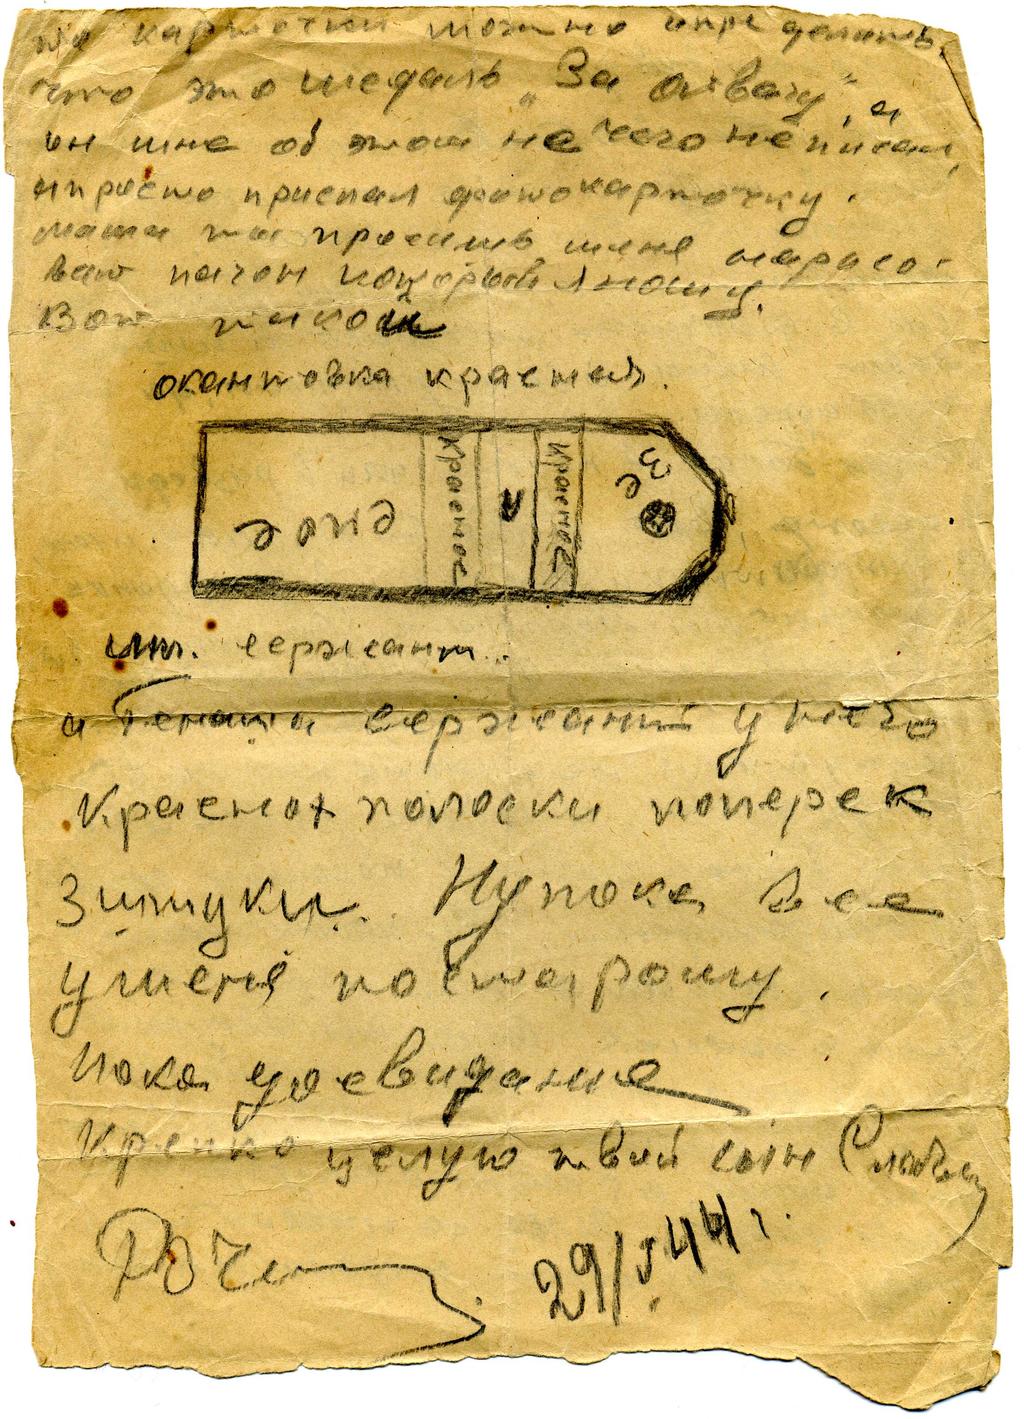 по карточки можно определить,
что это медаль „За отвагу", а
он мне об этом не чего не писал,
а просто прислал фотокарточку.
мама ты просишь меня нарисо-
ваю пагон который я ношу.
Вот такой
окантовка красная.
Красное
Красное
мл. сержант.
а Генаша сержант у него
Красных полоски поперек
3 штуки. Ну пока все
у меня по старому.
Пока досвидание
Крепко целую твой сын Слава
29/V 44 г.